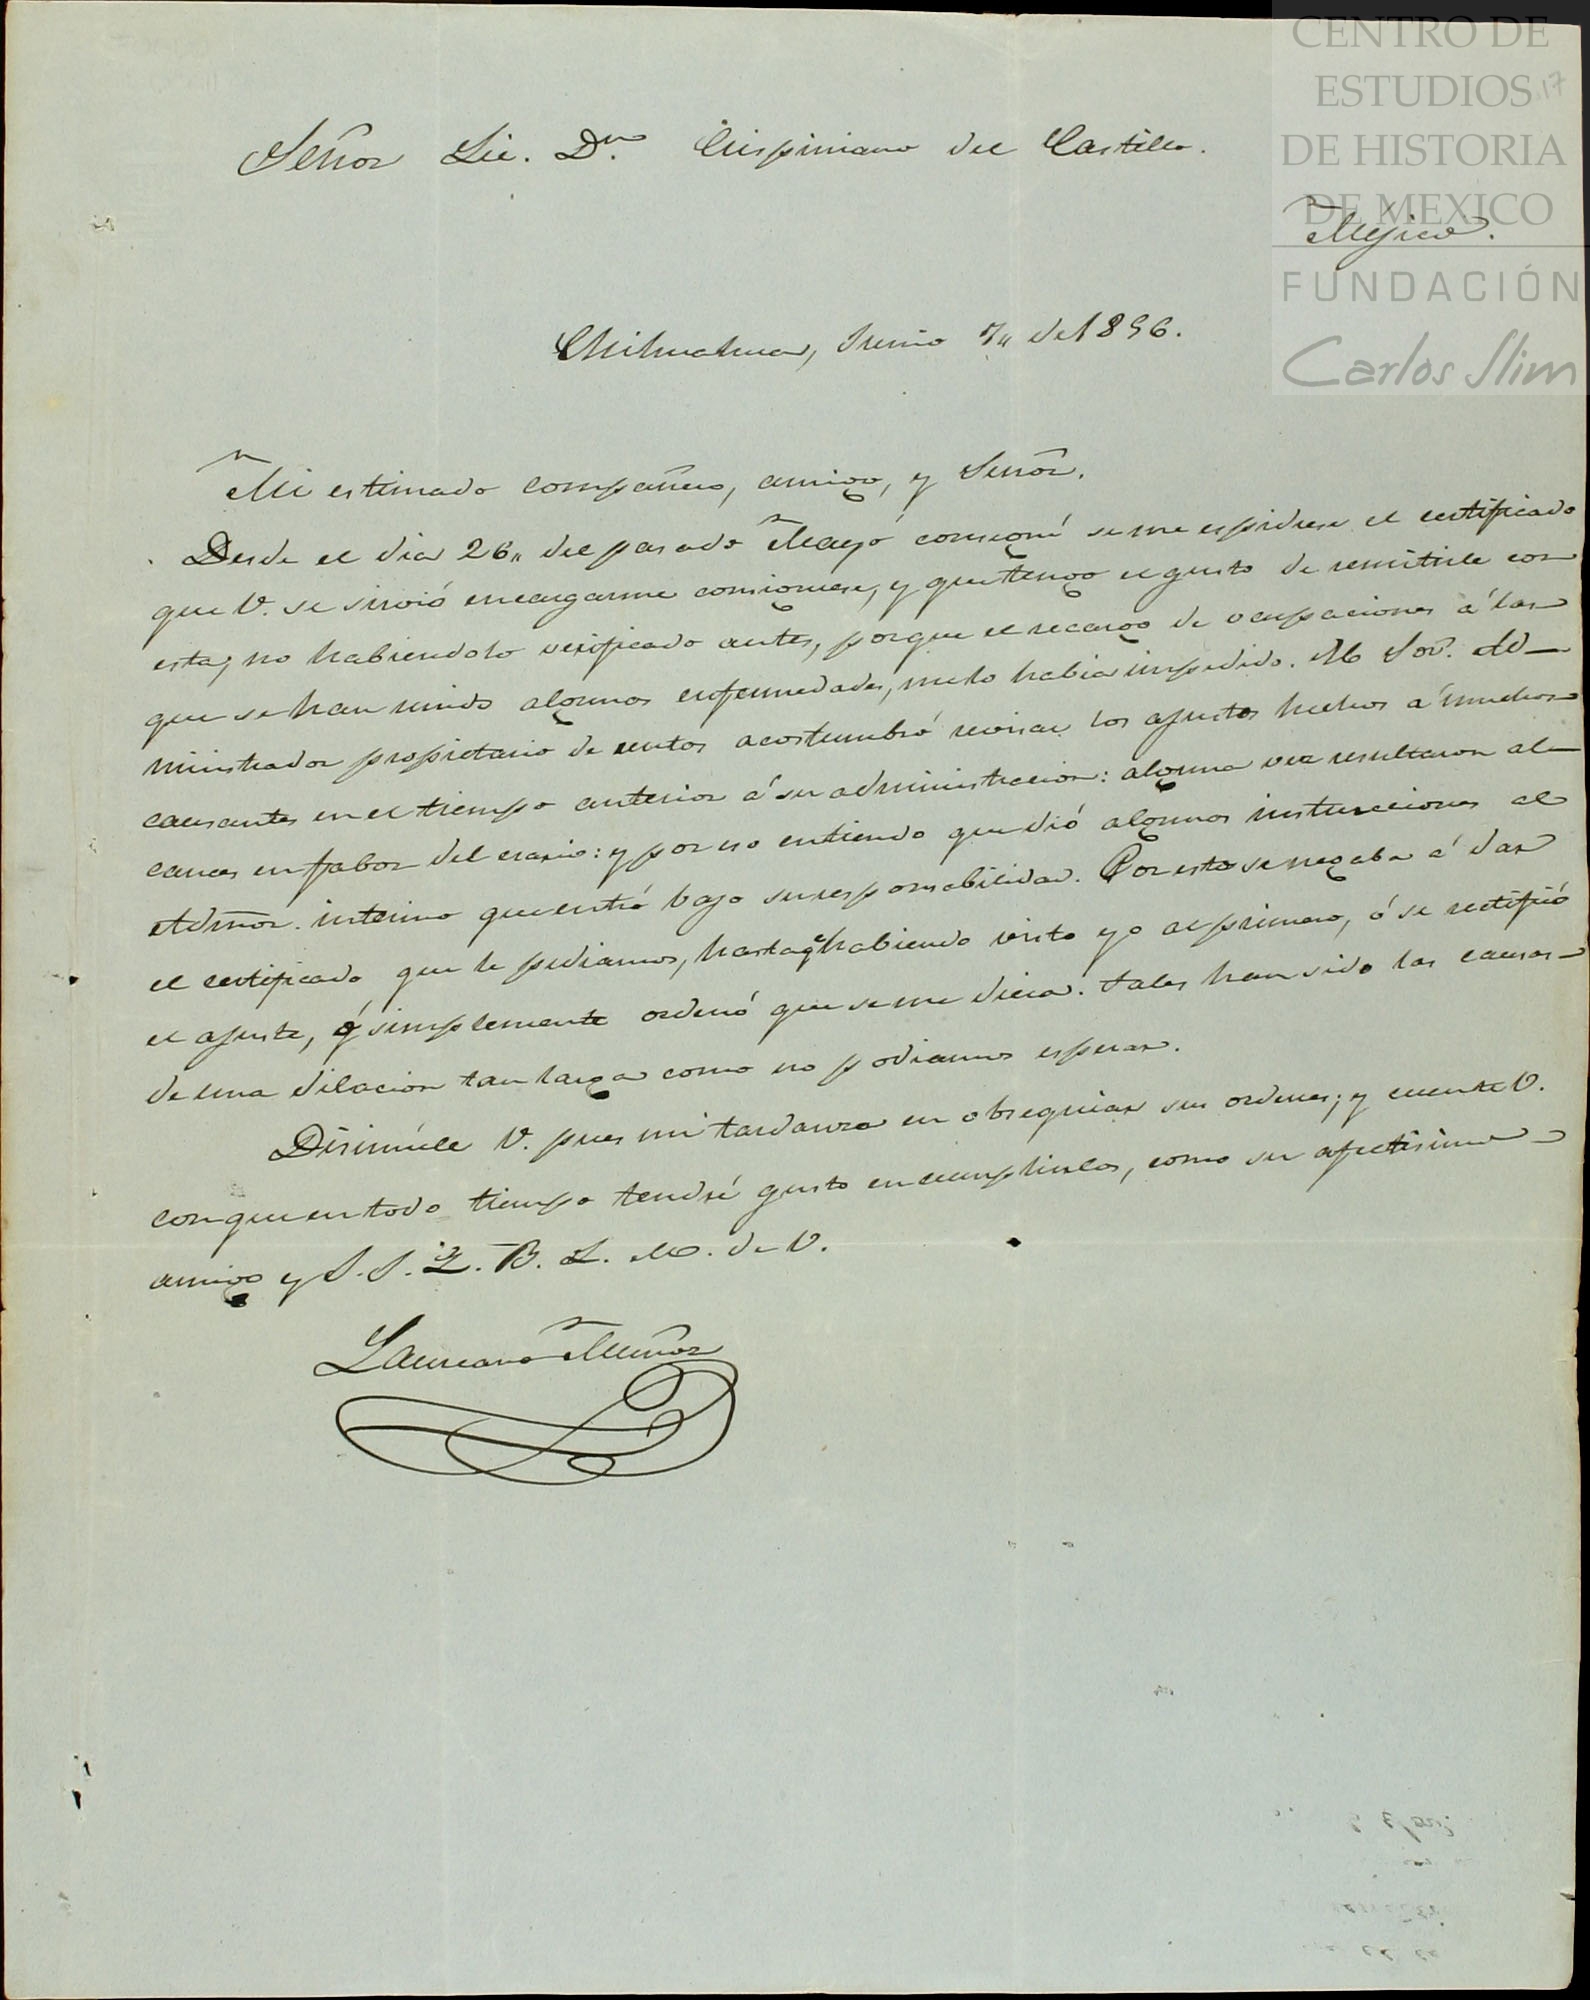 CENTRO DE
ESTUDIOS 17
DE HISTORIA
DE MEXICO
FUNDACIÓN
Carlos Slim
Señor Lic. Dn. Crispiniano del Castillo.
Méjico.
Chihuahua, Junio 7,, de 1856.
Mi estimado compañero, amigo, y Señor.
Desde el dia 26,, del pasado Mayo conseguí se me espidiese el certificado
que V. se sirvió encargarme consiguiese, y que tengo el gusto de remitirle con
esta, no habiendolo verificado antes, porque el recargo de ocupaciones á las
que se han unido algunas enfermedades, me lo habia impedido. El Sor. Ad-
ministrador propietario de rentas acostumbró revisar los ajustes hechos á muchos
causantes en el tiempo anterior á su administracion: alguna vez resultaron al-
cances en fabor del erario: y por eso entiendo que dió algunas instrucciones al
Admor. interino que entró bajo su responsabilidad. Por esto se negaba á dar
el certificado que le pediamos, hasta q.e habiendo visto yo al primero, ó se rectificó
el ajuste, ó simplemente ordenó que se me diera. Tales han sido las causas
de una dilacion tan larga como no podiamos esperar.
Disimúle V. pues mi tardanza en obsequiar sus ordenes; y cuente V.
con que en todo tiempo tendré gusto en cumplirlas, como su afectisimo
amigo y S. S. Q. B. L. M. de V.
Laureano Muñoz